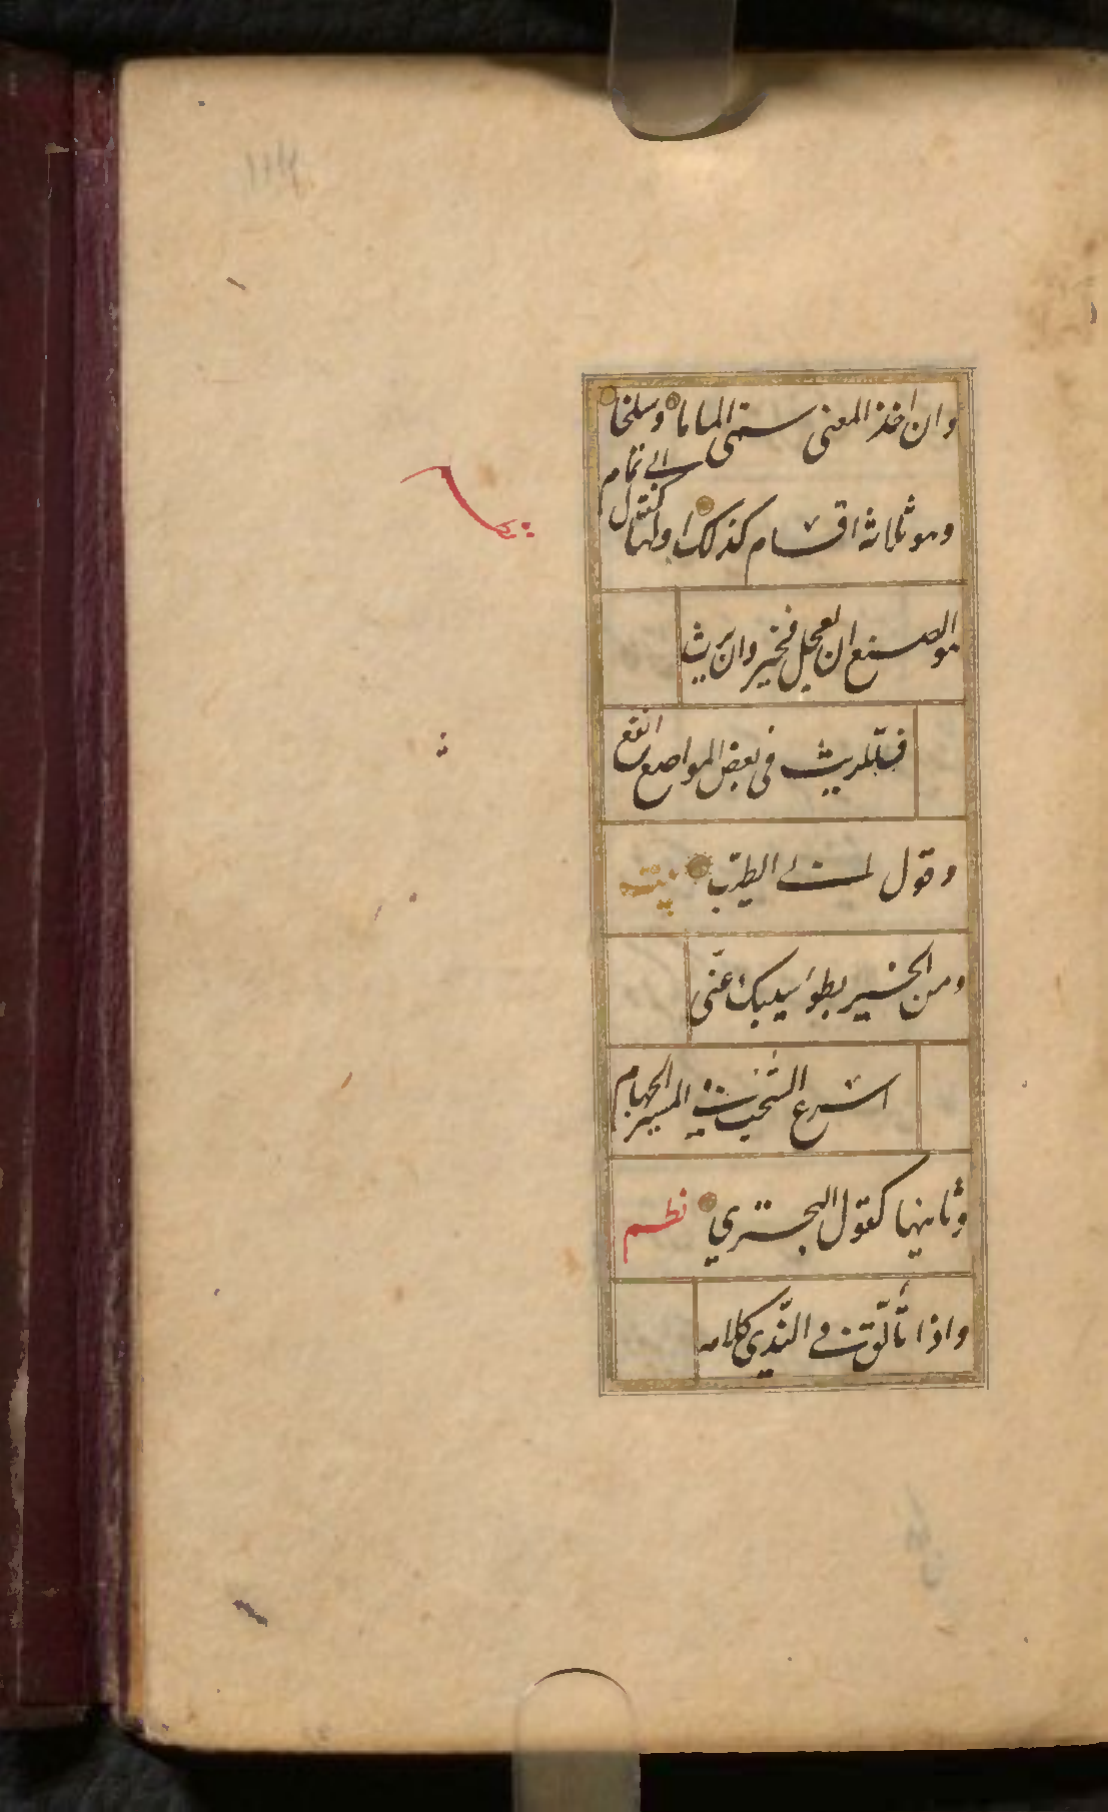 وان اخذ المعنى سمّى الماما وسلخا
وهو ثلاثة اقسام كذلك اولها كقول ابى تمام
هو الصنع ان يعجل فخير وان يرث
فللريث فى بعض المواضع انفع
وقول ابى الطيّب بيت
ومن الخير بطؤ سيبك عنّى
اسرع السّحب فى المسير الجهام
وثانيها كقول البحترى نظم
واذا تألّق فى النّدى كلامه